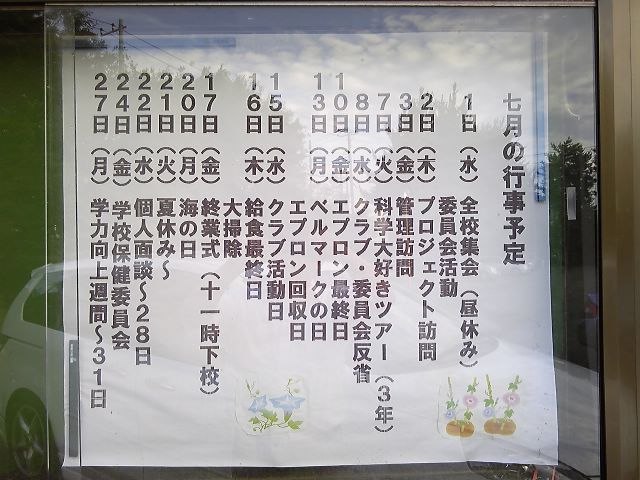 七月の行事予定
1日（水）全校集会（昼休み）
委員会活動
2日（木）プロジェクト訪問
3日（金）管理訪問
7日（火）科学大好きツアー（3年）
8日（水）クラブ・委員会反省
10日（金）エプロン最終日
13日（月）ベルマークの日
エプロン回収日
15日（水）クラブ活動日
16日（木）給食最終日
大掃除
17日（金）終業式（十一時下校）
20日（月）海の日
21日（火）夏休み～
22日（水）個人面談～28日
24日（金）学校保健委員会
27日（月）学力向上週間～31日